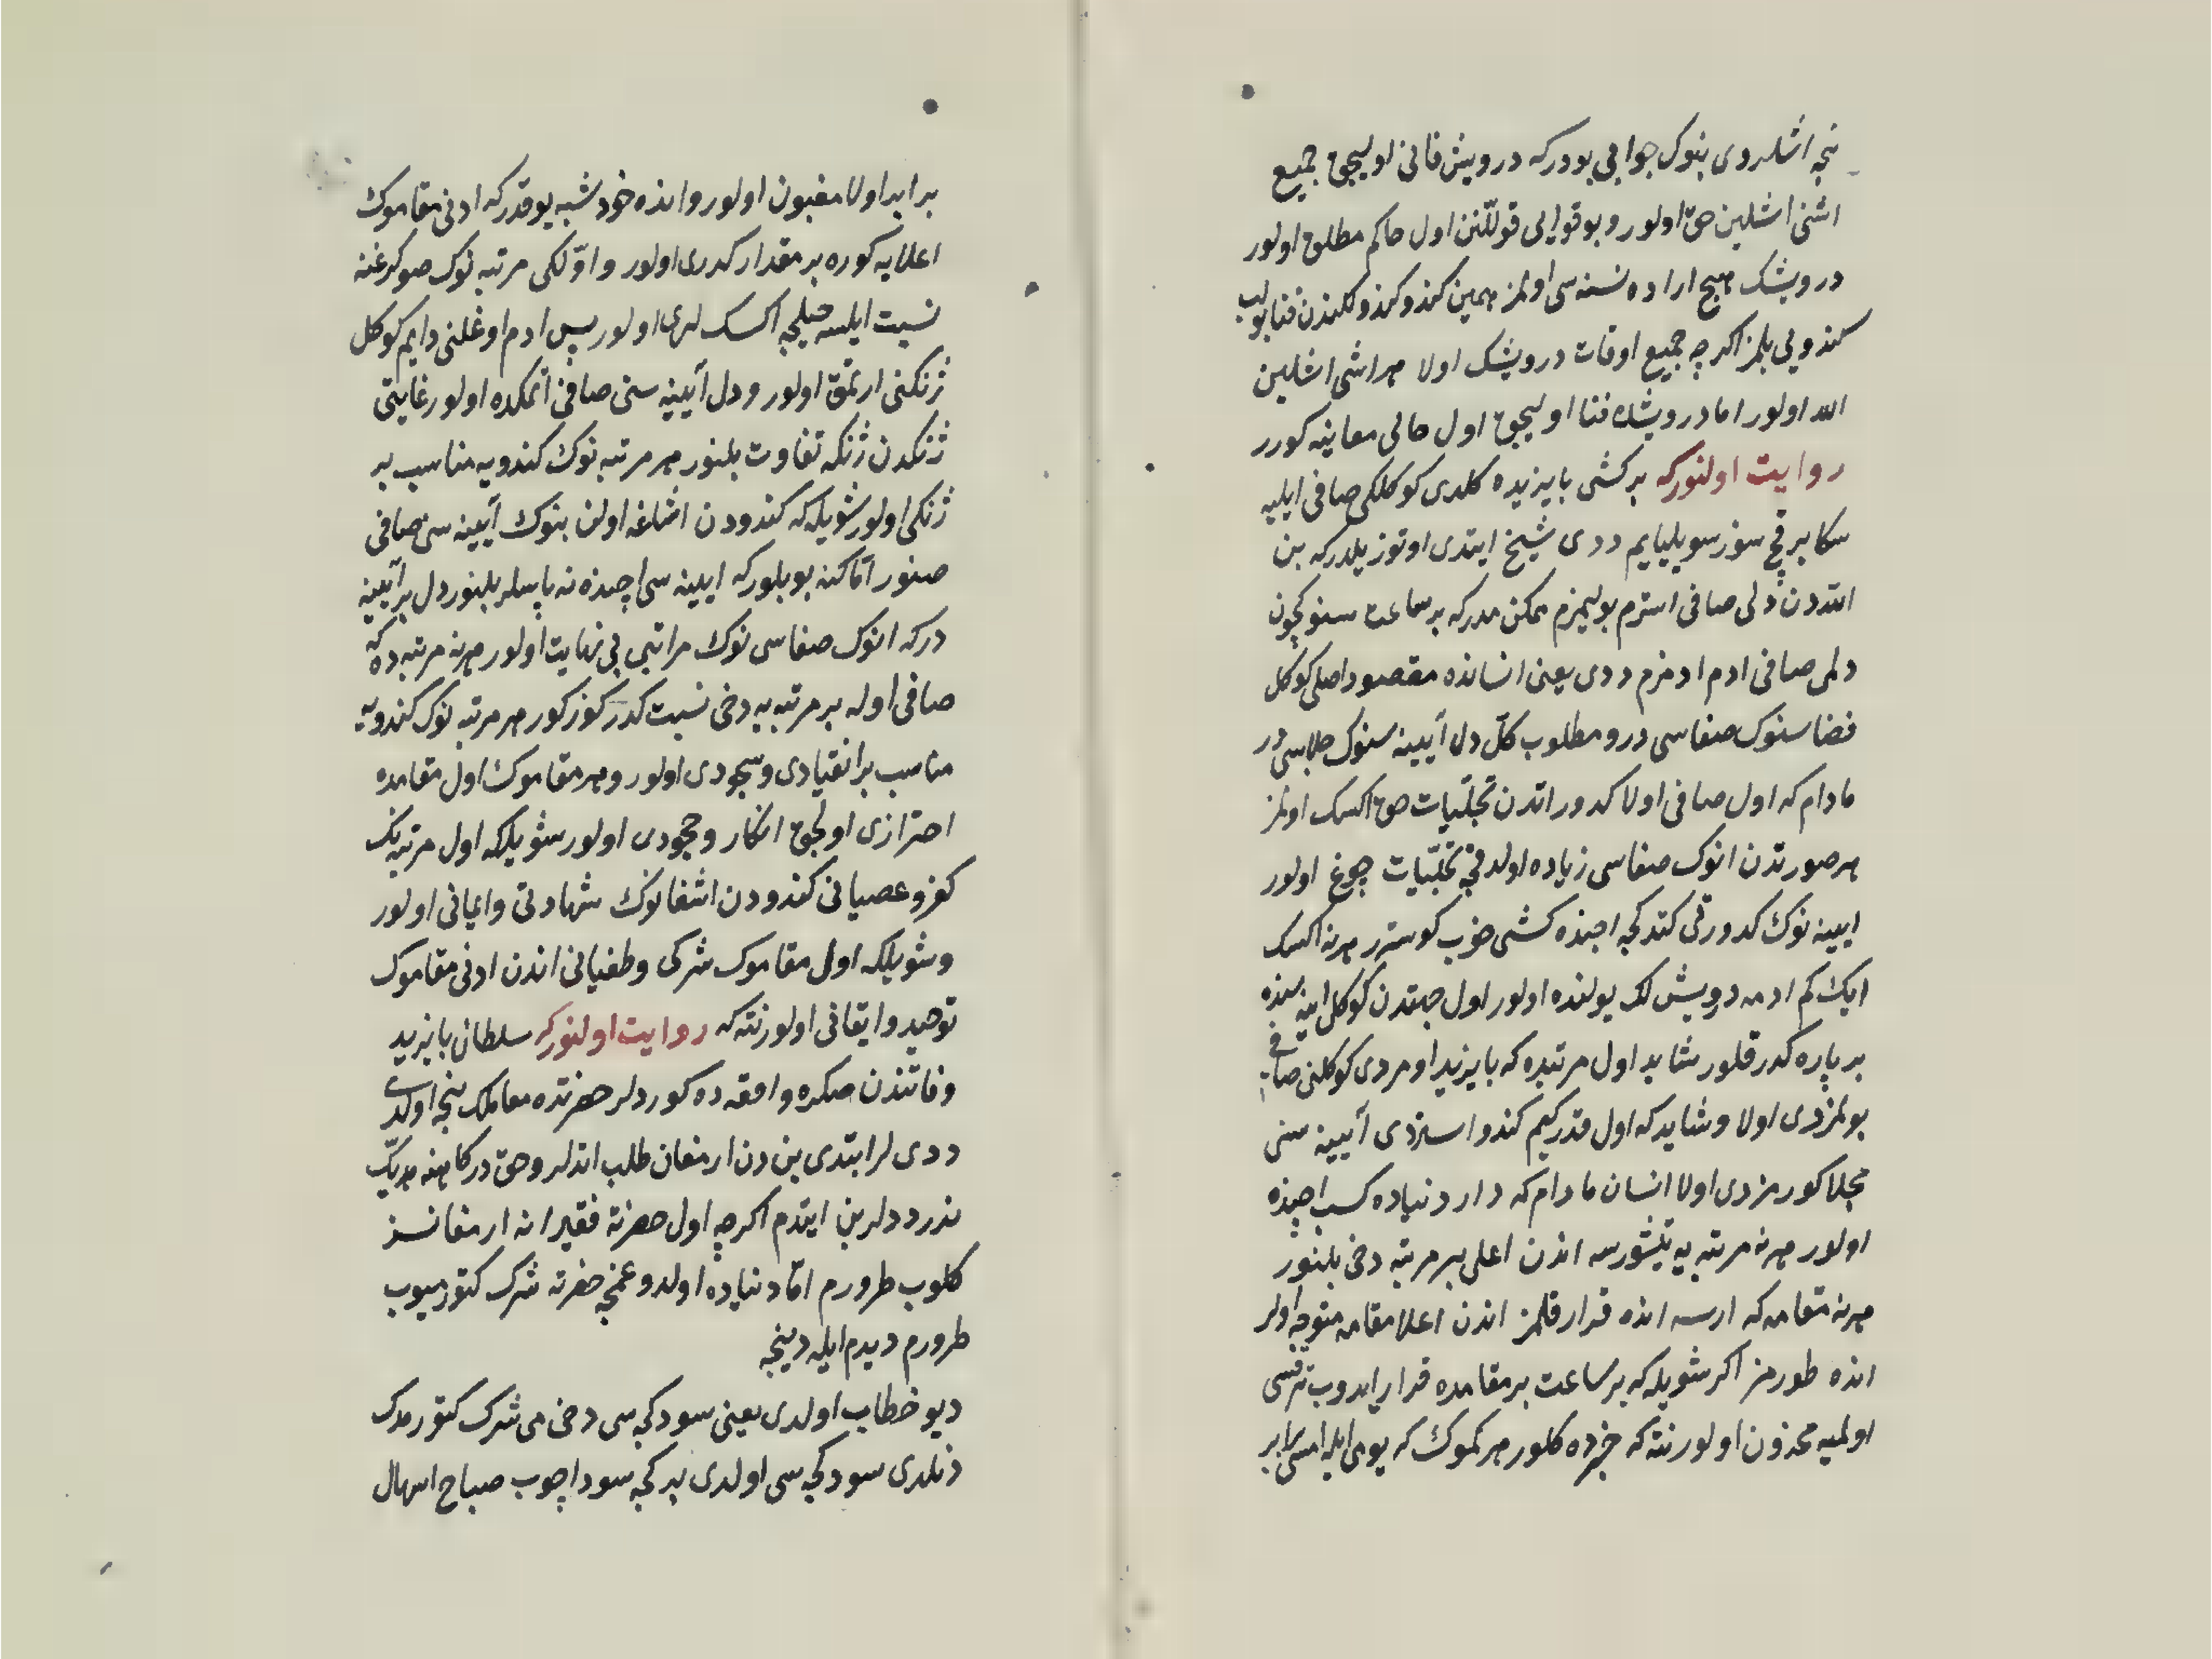 نجه اشلردی بنوک جوابی بودرکه درویش فانی اولیجق جمیع
اشنی اشلین حق اولور و بو قوایی قوللنن اول حاکم مطلق اولور
درویشک هیچ اراده نسنه سی اولمز همین کندو کندولکندن فنا بولب
کندویی بلمز اکرچه جمیع اوقات درویشک اولا هر اشی اشلین
الله اولور اما درویشده فنا اولیجق اول حالی معاینه کورر
روایت اولنورکه بر کشی بایزیده کلدی کوکلکی صافی ایلیه
سکا بر قچ سوز سویلیایم ددی شیخ ایتدی اوتوز یلدرکه بن
اللّهدن دلی صافی استرم بولیمزم ممکن مدرکه بر ساعت سنوکچون
دلمی صافی ادم ادمزم ددی یعنی انسانده مقصود اصلی کوکل
فضاسنوک صفاسی در و مطلوب کلّ دل آیینه سنوک جلاسی در
مادام که اول صافی اولا کدوراتدن تجلّیات حق اکسک اولمز
هر صورتدن انوک صفاسی زیاده اولدقجه تجلّیات چوغ اولور
ایینه نوک کدورتی کتدکچه اچنده کشی خوب کوستره هر نه اکسک
ایک کم ادمه درویش لک یولنده اولور اول جهتدن کوکل اینه سنده
بر پاره کدر قلور شاید اول مرتبده که بایزید اومردی کوکلنی صافی
بولمزدی اولا و شاید که اول قدر کیم کندو استردی آیینه سنی
مجلا کورمزدی اولا انسان مادام که دار دنیاده کسب اچنده
اولور هر نه مرتبه یه یتشورسه اندن اعلی بر مرتبه دخی بلنور
هر نه مقامه که ارسه انده قرار قلمز اندن اعلا مقامه متوجه اولر
انده طورمز اکر شویله که بر ساعت بر مقامده قرار ایدوب ترقیسی
اولمیه محزون اولور نته که خبرده کلور هر کموک که یومی ایله امسی برابر
برابر اولا مغبون اولور و انده خود شبه یوقدرکه ادنی مقاموک
اعلایه کوره بر مقدار کدری اولور و اوّلکی مرتبه نوک صوکرغنه
نسبت ایلسه خیلجه اکسک لری اولور پس ادم اوغلنی دایم کوکل
ژنکنی ارتمق اولور و دل آیینه سنی صافی اتمکده اولور غایتی
ژنکدن ژنکه تفاوت بلنور هر مرتبه نوک کندویه مناسب بر
ژنکی اولور شویله که کندودن اشاغه اولن بنوک آیینه سی صافی
صنور امّا کنه بو بلورکه ایینه سی اچنده نه پاسلر بلنور دل بر آیینه
درکه انوک صفاسی نوک مراتبی بی نهایت اولور هر نه مرتبه ده که
صافی اوله بر مرتبه یه دخی نسبت کدر کوزکور هر مرتبه نوک کندویه
مناسب بر انقیادی و سجودی اولور و هر مقاموک اول مقامده
احترازی اولجق انکار و جحودی اولور شویلکه اول مرتبه نک
کفر و عصیانی کندودن اشغانوک شهادتی و ایمانی اولور
و شویلکه اول مقاموک شرکی و طغیانی اندن ادنی مقاموک
توحید و ایقانی اولور نته که روایت اولنورکه سلطان بایزید
وفاتندن صکره واقعه ده کوردلر حضرتده معاملک نیجه اولدی
ددی لر ایتدی بن دن ارمغان طلب اتدلر و حق درکاهنه هدیّک
ندر ددلر بن ایتدم اکرچه اول حضرته فقیرانه ارمغانسز
کلوب طرورم امّا دنیاده اولدوغمجه حضرته شرک کتورمیوب
طرورم دیدم ایله دینجه
دیو خطاب اولدی یعنی سود کجه سی دخی می شرک کتورمدک
دنلدی سود کجه سی اولدی بر کجه سود اچوب صباح اسهال